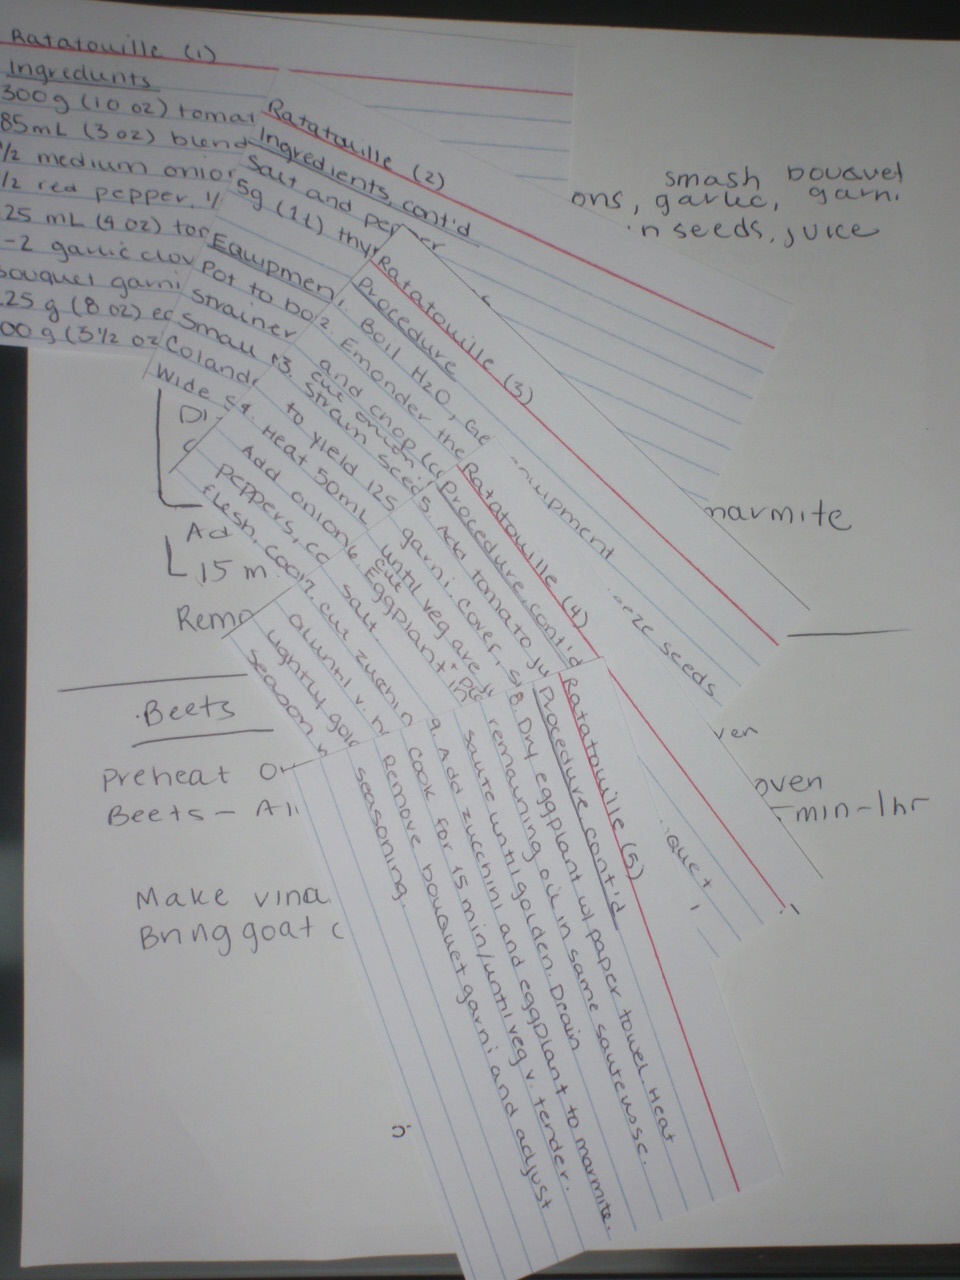 Ratatouille (1)
Ingredients
300g (10 oz) tomat
85mL (3 oz) blend
1/2 medium onion
1/2 red pepper, 1/
25 mL (4 oz) tom
-2 garlic clov
bouquet garni
25 g (8 oz) eg
00g (3 1/2 oz
Ratatouille (2)
Ingredients, cont'd
Salt and pepper
5g (1t) thy
Equipmen
Pot to bo
Strainer
Small
Coland
Wide
Ratatouille (3)
Procedure
Boil H2O, Ge
2. Emonder the
and chop
3. cut onion
strain seeds
to yield 125
4. Heat 50mL
Add onion
peppers, co
flesh, cook
Ratatouille (4)
Procedure, cont'd
5. Add tomato ju
garni. cover, s
until veg are
6. cut Eggplant in
salt
7. cut zucchin
until v. h
lightly gold
season w
Ratatouille (5)
Procedure cont'd
8. Dry eggplant w/ paper towel. Heat
remaining oil in same sauteusse.
saute until golden. Drain
9. Add zucchini and eggplant to marmite.
cook for 15 min/until veg v. tender.
Remove bouquet garni and adjust
seasoning.
smash bouquet
ons, garlic, garni.
n seeds, juice
quipment
marmite
eeze seeds
Di
Ad
15 m
Remo
Beets
ven
Preheat Ov
oven
Beets - All
min-1hr
quet
Make vina
Bring goat c